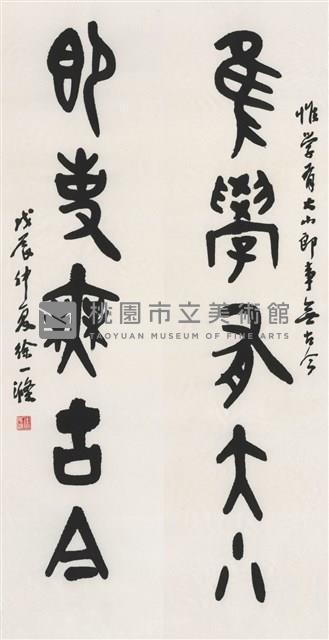 惟學有大小
惟学有大小即事無古今
即事無古今
戊辰仲夏徐一隆
桃園市立美術館
TAOYUAN MUSEUM OF FINE ARTS